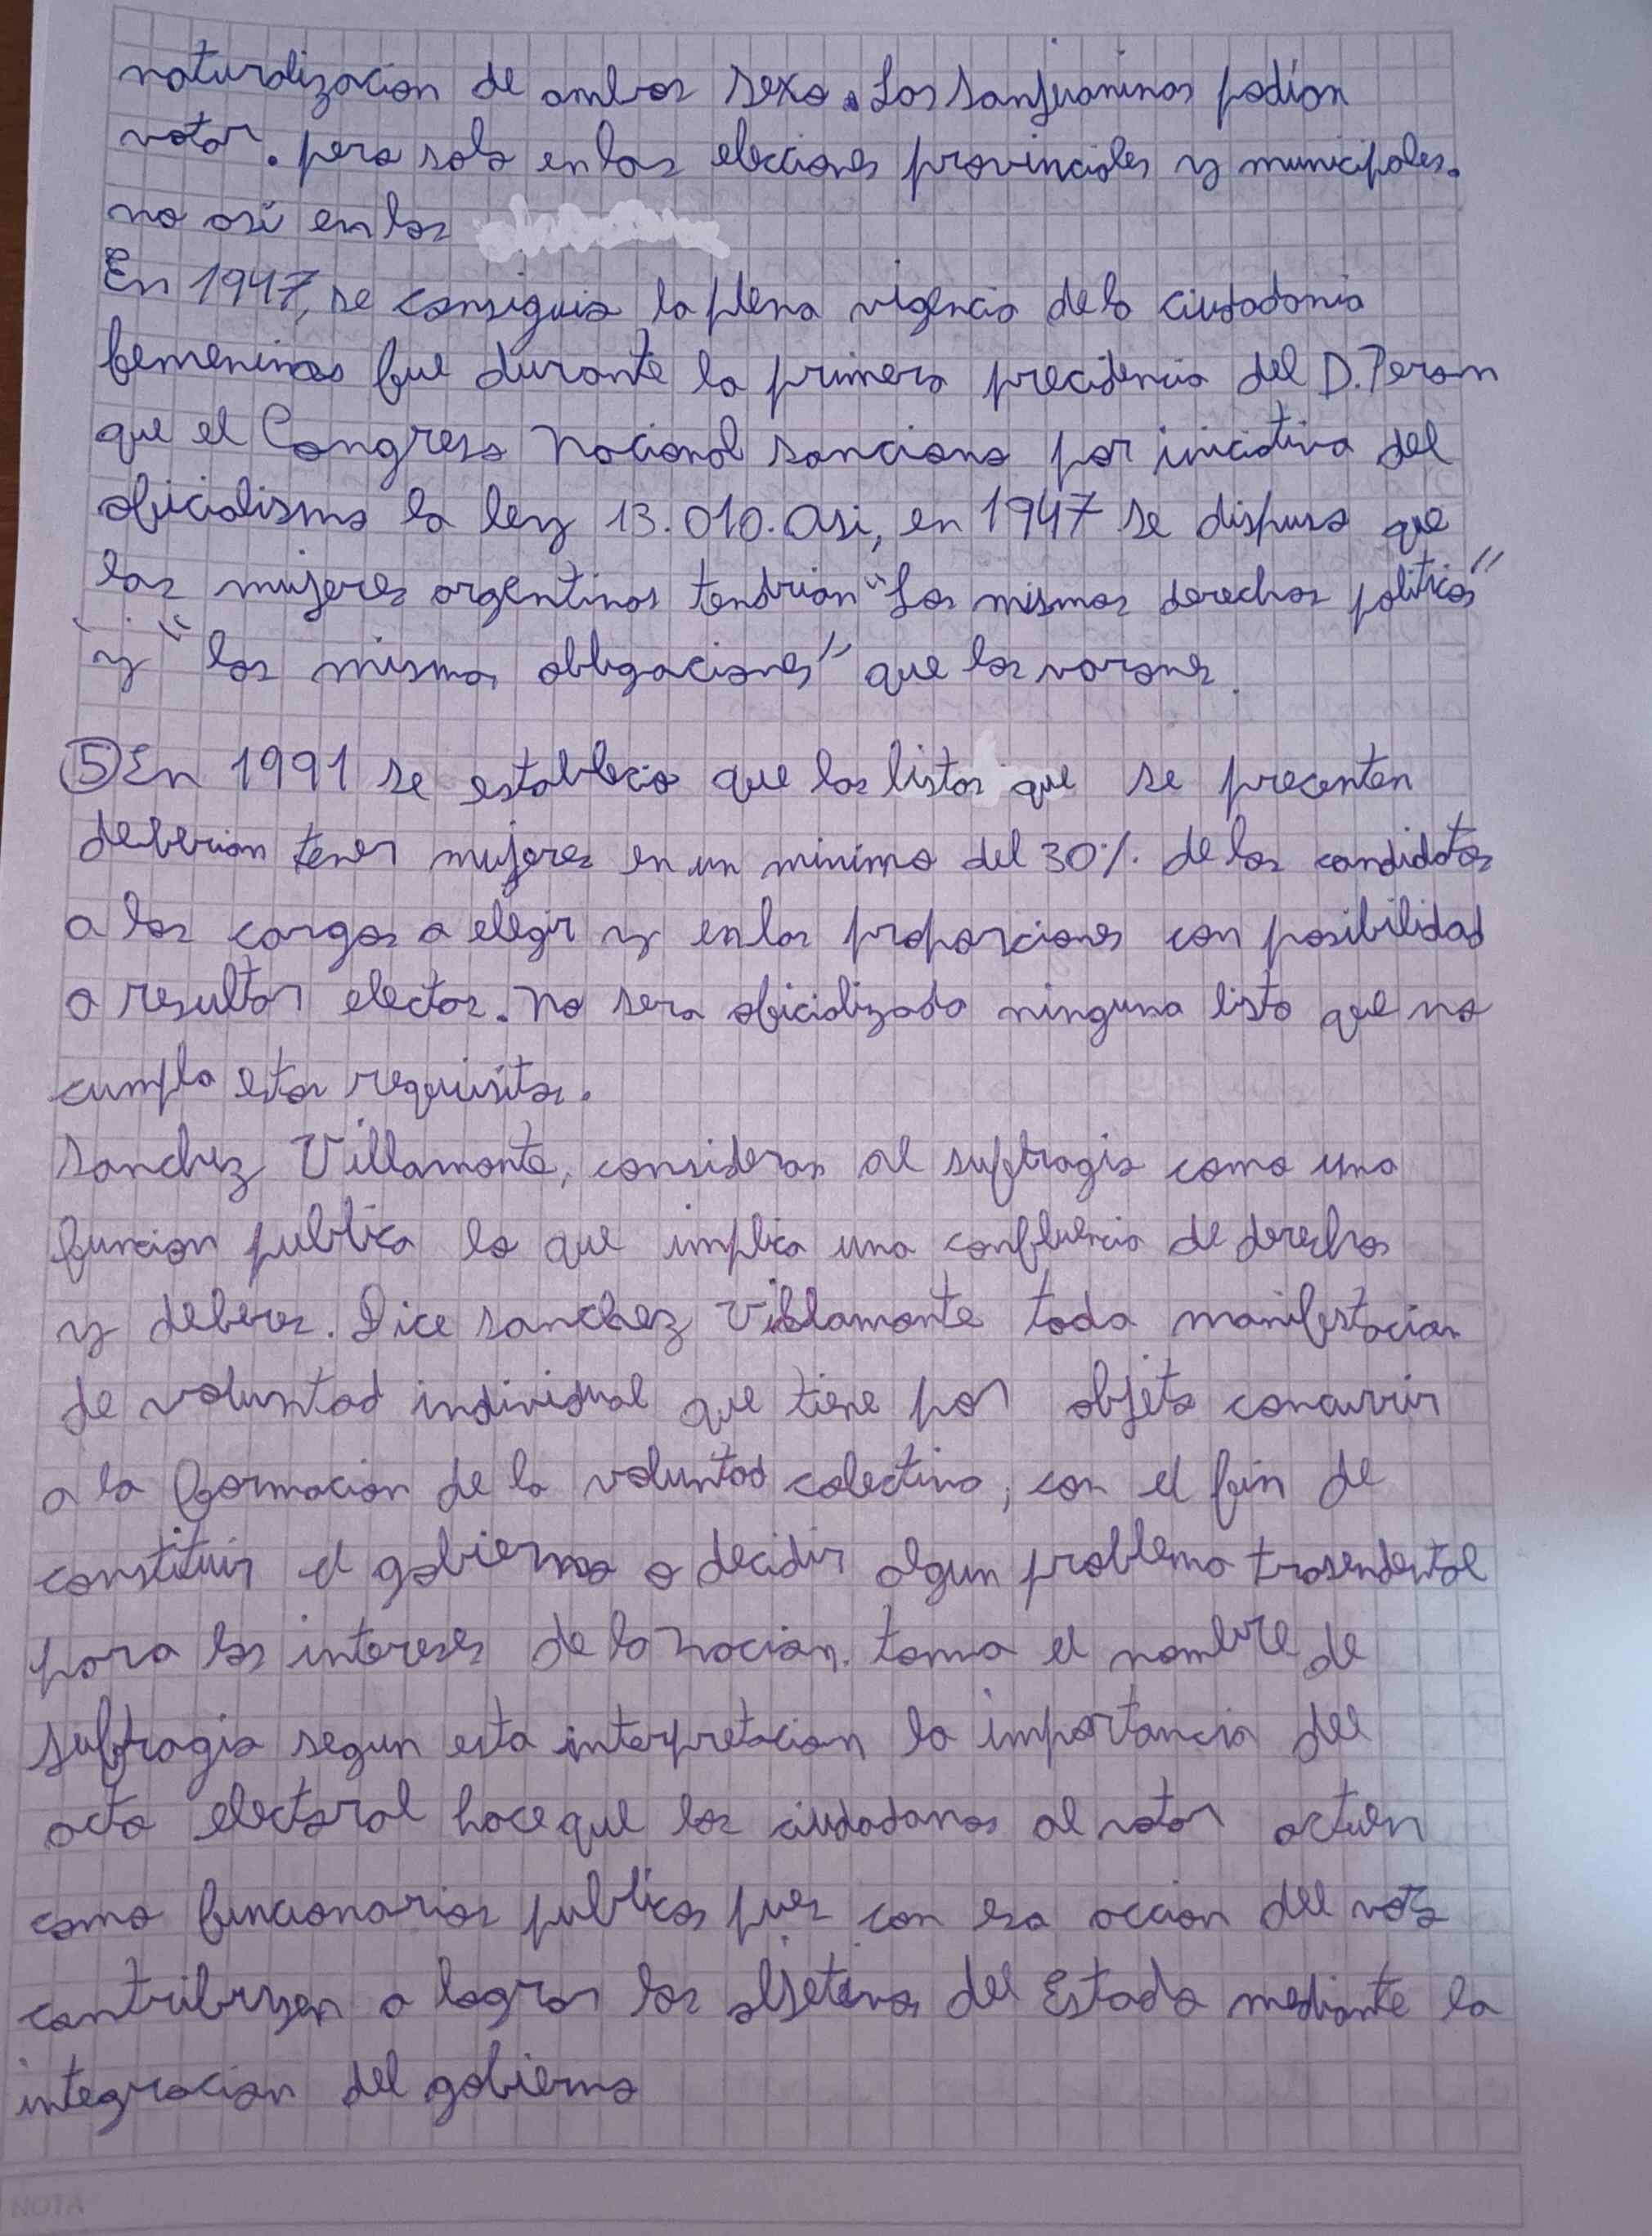 naturalizacion de ambos sexo. Las Sanjuaninas podían
votar. pero solo en las elecciones provinciales y municipales.
no asi en las
En 1947, se consiguio la plena vigencia de la ciudadania
femeninas fue durante la primera precidencia del D. Peron
que el Congreso Nacional sanciono por iniciativa del
oficialismo la ley 13.010. Asi, en 1947 se dispuso que
las mujeres argentinas tendrian "Los mismos derechos politicos"
y "las mismas obligaciones" que los varones.
5 En 1991 se establecio que las listas que se precenten
deberian tener mujeres en un minimo del 30% de los candidatos
a los cargos a elegir y en las proporciones con posibilidad
a resultar electos. No sera oficializada ninguna lista que no
cumpla estos requisitos.
Sanchez Villamonte, consideran al sufragio como una
funcion publica lo que implica una confluencia de derechos
y deberes. Dice sanchez Villamonte toda manifestacion
de voluntad individual que tiene por objeto concurrir
a la formacion de la voluntad colectiva, con el fin de
constituir el gobierno o decidir algun problema trasendental
para los intereses de la nacion. toma el nombre de
sufragio segun esta interpretacion la importancia del
acto electoral hace que los ciudadanos al votar actuen
como funcionarios publicos pues con esa accion del voto
contribuyen a lograr los objetivos del Estado mediante la
integracion del gobierno
NOTA